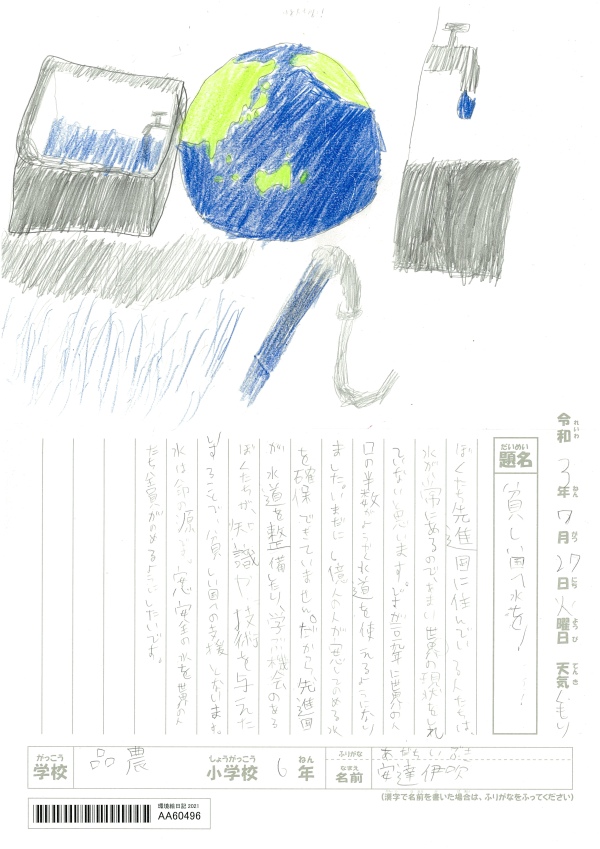 令和3年7月27日火曜日 天気くもり
れいわ ねん がつ にち ようび てんき
だいめい
題名
貧しい国へ水を!
ぼくたち先進国に住んでいる人たちは、
水が豊富にあるので、あまり世界の現状をしれ
ていないと思います。
口の半数がようやく水道を使えるようになり
ました。いまだに 億人の人が安心してのめる水
を確保できていません。だから先進国
が水道を整備したり、学ぶ機会のある
ぼくたちが、知識や技術を与えた
りすることで、貧しい国への支援となります。
水は命の源です。安全の水を世界の人
たち全員がのめるようにしたいです。
がっこう
学校
品農
しょうがっこう
小学校
6
ねん
年
ふりがな
あだちいぶき
なまえ
名前
安達伊吹
(漢字で名前を書いた場合は、ふりがなをふってください)
環境絵日記 2021
AA60496